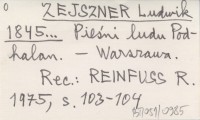 0 ZEJSZNER Ludwik
1845... Pieśni ludu Pod-
halan. — Warszawa.
Rec.: REINFUSS R.
1975, s. 103-104